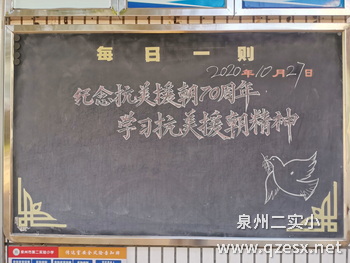 每日一则
2020年10月27日
纪念抗美援朝70周年
学习抗美援朝精神
泉州二实小
www.qzesx.net